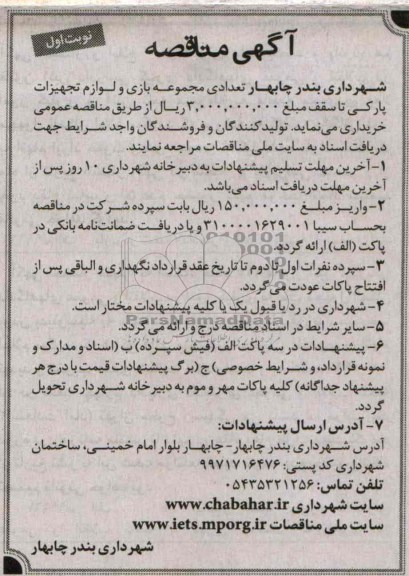 نوبت اول
آگهی مناقصه
شهرداری بندر چابهار تعدادی مجموعه بازی و لوازم تجهیزات
پارکی تا سقف مبلغ ۳,۰۰۰,۰۰۰,۰۰۰ ریال از طریق مناقصه عمومی
خریداری می‌نماید. تولیدکنندگان و فروشندگان واجد شرایط جهت
دریافت اسناد به سایت ملی مناقصات مراجعه نمایند.
۱- آخرین مهلت تسلیم پیشنهادات به دبیرخانه شهرداری ۱۰ روز پس از
آخرین مهلت دریافت اسناد می‌باشد.
۲- واریز مبلغ ۱۵۰,۰۰۰,۰۰۰ ریال بابت سپرده شرکت در مناقصه
بحساب سیبا ۳۱۰۰۰۰۱۶۲۹۰۰۱ و یا دریافت ضمانت‌نامه بانکی در
پاکت (الف) ارائه گردد.
۳- سپرده نفرات اول تا دوم تا تاریخ عقد قرارداد نگهداری و الباقی پس از
افتتاح پاکات عودت می گردد.
۴- شهرداری در رد یا قبول یک یا کلیه پیشنهادات مختار است.
ParsNamadData
۵- سایر شرایط در اسناد مناقصه درج و ارائه می گردد.
۶- پیشنهادات در سه پاکت الف (فیش سپرده) ب (اسناد و مدارک و
نمونه قرارداد، و شرایط خصوصی) ج (برگ پیشنهادات قیمت با درج هر
پیشنهاد جداگانه) کلیه پاکات مهر و موم به دبیرخانه شهرداری تحویل
گردد.
۷- آدرس ارسال پیشنهادات:
آدرس شهرداری بندر چابهار- چابهار بلوار امام خمینی، ساختمان
شهرداری کد پستی: ۹۹۷۱۷۱۶۴۷۶
تلفن تماس: ۰۵۴۳۵۳۲۱۲۵۶
سایت شهرداری www.chabahar.ir
سایت ملی مناقصات www.iets.mporg.ir
شهرداری بندر چابهار